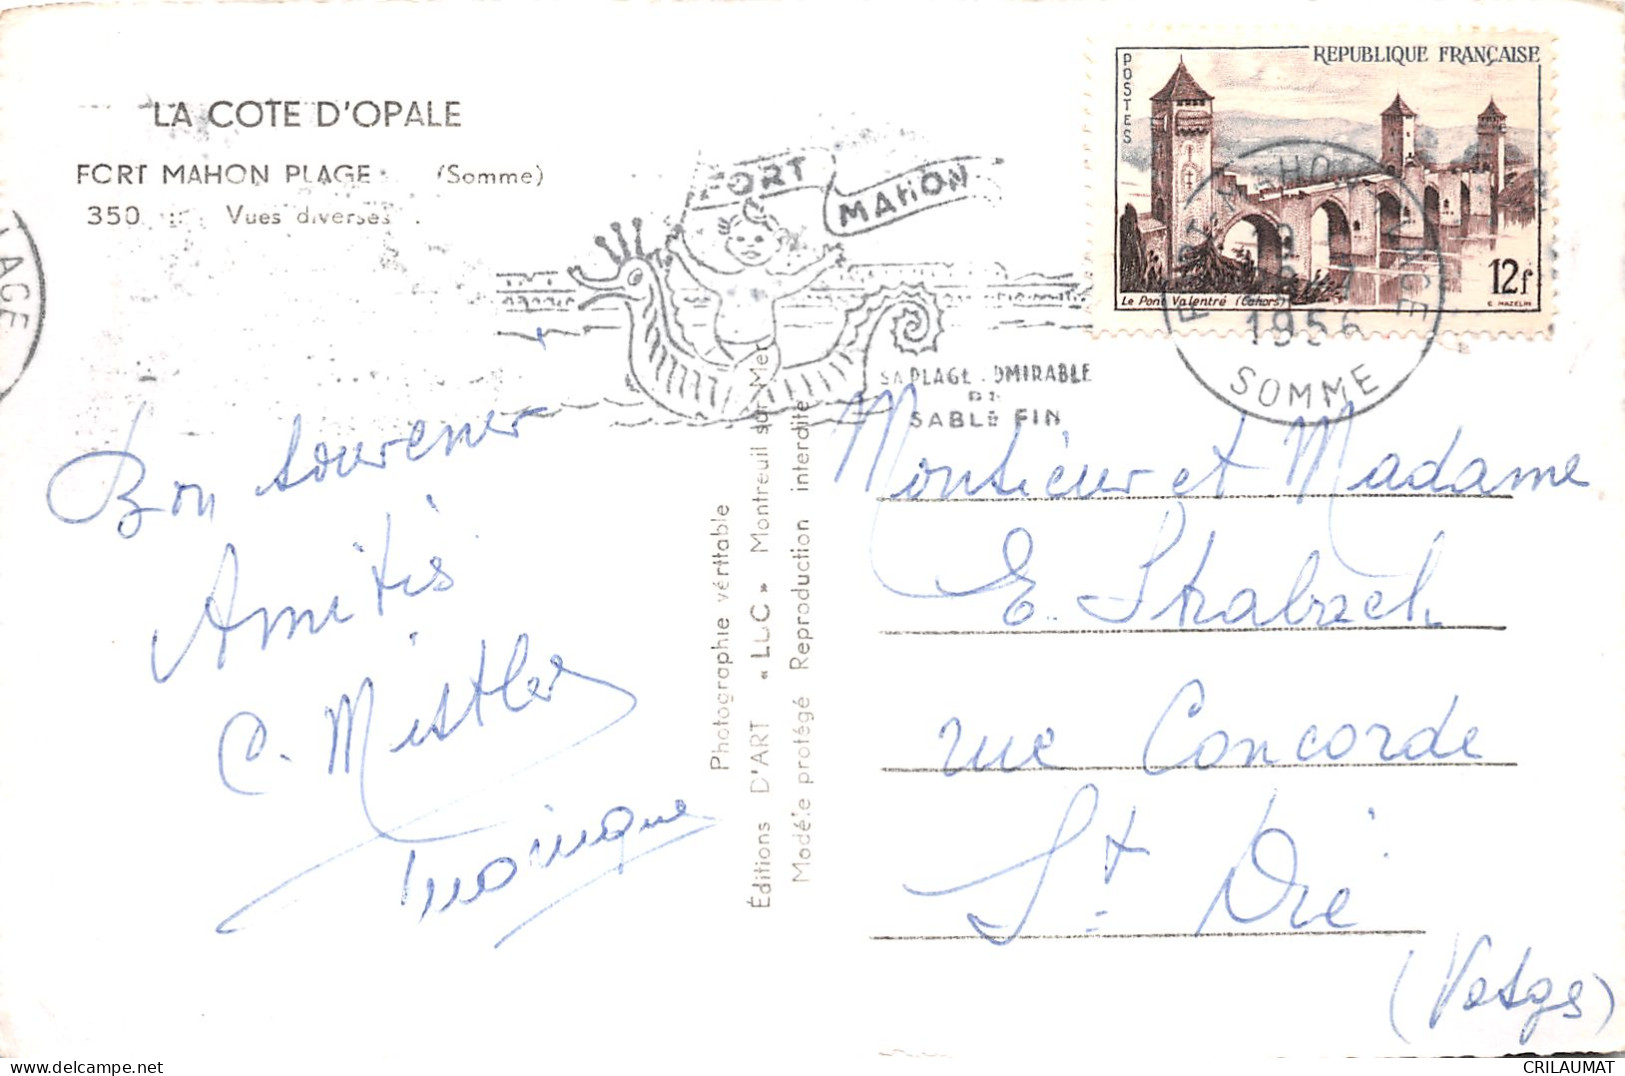 LA COTE D'OPALE
FORT MAHON PLAGE (Somme)
350 Vues diverses
FORT MAHON
SA PLAGE ADMIRABLE
DE
SABLE FIN
REPUBLIQUE FRANÇAISE
POSTES
Le Pont Valentré (Cahors)
12f
E. MAZELIN
FORT-MAHON PLAGE
1956
SOMME
LAGE
Bon souvenir
Amitiés
C. Mistler
Monique
Photographie véritable
Éditions D'ART « LUC » Montreuil sur Mer
Modèle protégé Reproduction interdite
Monsieur et Madame
E. Strabach
rue Concorde
St. Dié
(Vosges)
CRILAUMAT